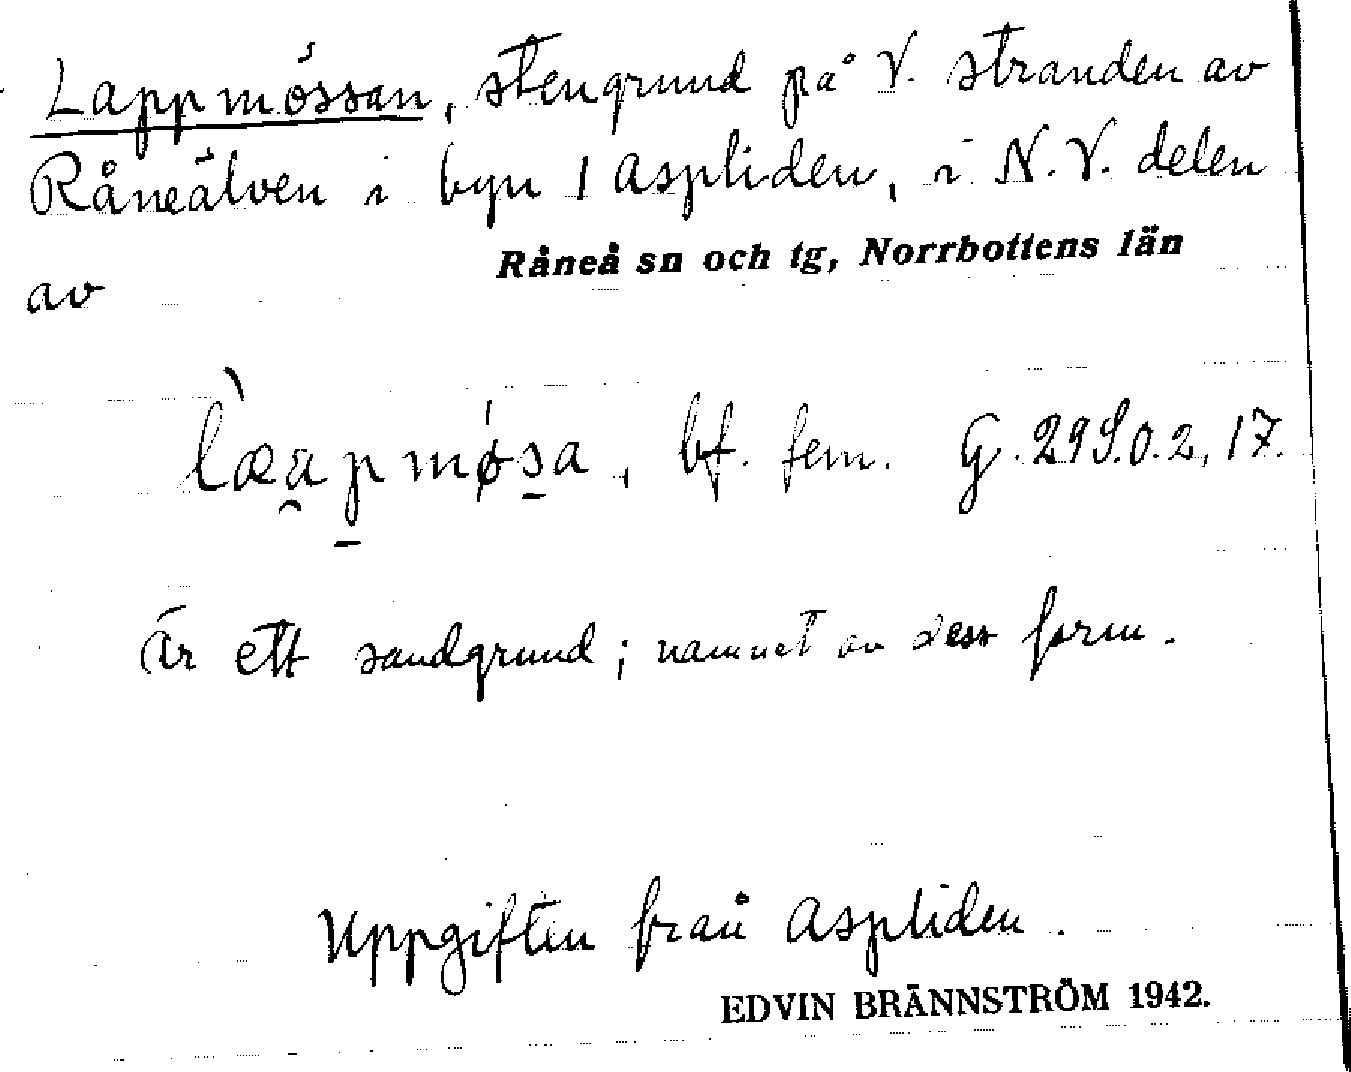 Lappmössan, stengrund på V. stranden av
Råneälven i byn 1 Aspliden, i N.V. delen
av
Råneå sn och tg, Norrbottens län
læapmøsa, bf. fem. G. 29 S.O. 2, 17.
Är ett sandgrund; namnet av dess form.
Uppgiften från Aspliden.
EDVIN BRÄNNSTRÖM 1942.